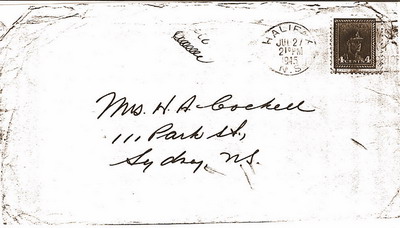 HALIFAX
JUL 27
PM
1945
N.S.
4 4
Mrs. H. A. Cockell
111 Park St.,
Sydney, N.S.